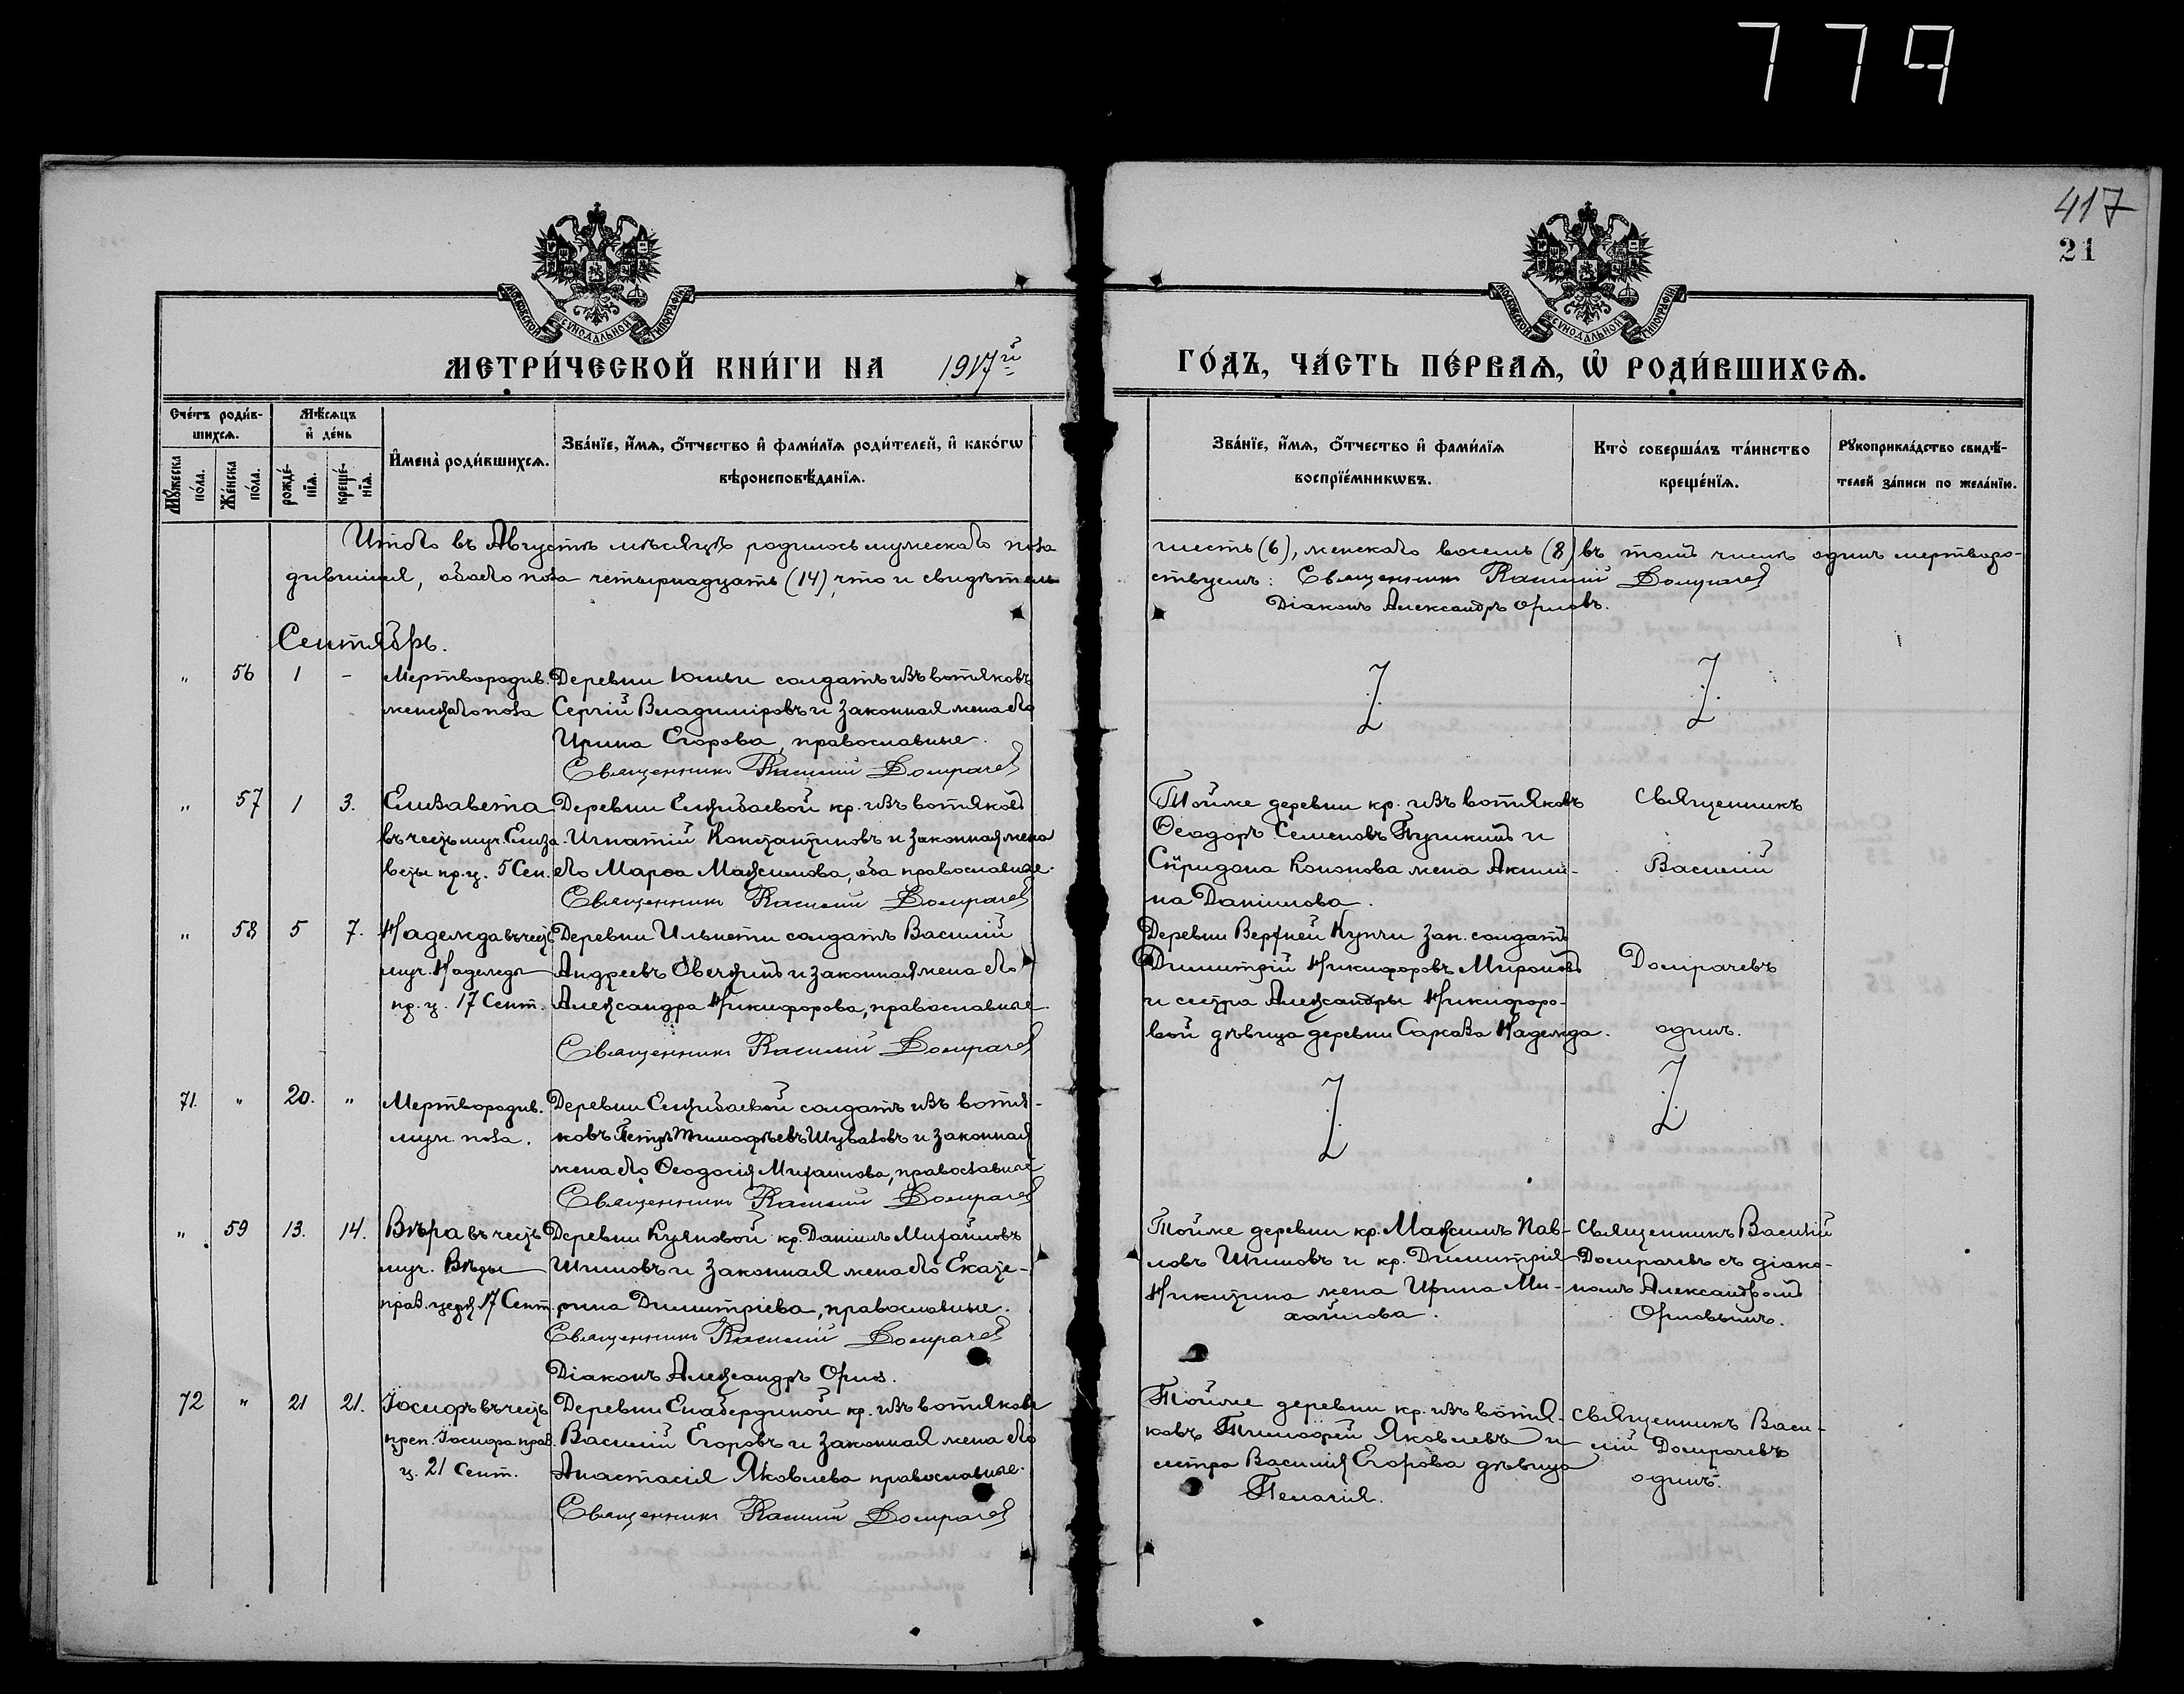 779
417
21
МОСКОВСКОЙ СѴНОДАЛЬНОЙ ТИПОГРАФІИ
МОСКОВСКОЙ СѴНОДАЛЬНОЙ ТИПОГРАФІИ
МЕТРИ́ЧЕСКОЙ КНИ́ГИ НА 1917й
ГО́ДЪ, ЧА́СТЬ ПЕ́РВАѦ, Ѡ҆ РОДИ́ВШИХСѦ.
Сче́тъ роди́в-
шихсѧ.
Мѣ́сѧцъ
и҆ де́нь
Мꙋ́жеска по́ла.
Же́нска по́ла.
рожде́-
нїѧ.
креще́-
нїѧ.
И҆мена̀ роди́вшихсѧ.
Зва́нїе, и҆́мѧ, ѻ҆́тчество и҆ фами́лїѧ роди́телей, и҆ како́гѡ
вѣроисповѣ́данїѧ.
Зва́нїе, и҆́мѧ, ѻ҆́тчество и҆ фами́лїѧ
воспрїе́мникѡвъ.
Кто̀ соверша́лъ та́инство
креще́нїѧ.
Рꙋкоприкла́дство свидѣ́-
телей за́писи по жела́нїю.
Итого въ Августѣ мѣсяцѣ родилось мужескаго пола
шесть (6), женскаго восемь (8) въ томъ числѣ одинъ мертворо-
дившійся, обоего пола четырнадцать (14), что и свидѣтель
ствуемъ: Священникъ Василій Домрачев
Діаконъ Александръ Орловъ.
Сентябрь.
" 56 1 - Мертвородив.
женскаго пола
Деревни Юмьи солдатъ изъ вотяковъ
Сергій Владиміровъ и законная жена его
Ирина Егорова, православные.
Священникъ Василій Домрачев
" 57 1 3. Елизавета
въ честь муч. Елиза
веты пр. ц. 5 Сен.
Деревни кр. изъ вотяковъ
Игнатій Константиновъ и законная жена
его Марѳа Максимова, оба православные.
Священникъ Василій Домрачев
Тойже деревни кр. изъ вотяковъ
Ѳеодоръ Семеновъ Пушкинъ и
Спиридона Кононова жена Акили-
на Даніилова.
Священникъ
Василій
" 58 5 7. Надежда въ честь
муч. Надежды
пр. ц. 17 Сент.
Деревни Ильнети солдатъ Василій
Андреевъ Овечкинъ и законная жена его
Александра Никифорова, православные
Священникъ Василій Домрачев
Деревни Верхней Кунчи зап. солдатъ
Димитрій Никифоровъ Мироновъ
и сестра Александры Никифоро-
вой дѣвица деревни Надежда.
Домрачевъ
одинъ.
71. " 20. " Мертвородив.
муж. пола.
Деревни солдатъ изъ вотя-
ковъ Петръ Тимофѣевъ Шуваловъ и законная
жена его Ѳеодосія Михаилова, православные
Священникъ Василій Домрачев
" 59 13. 14. Вѣра въ честь
муч. Вѣры
прав. церк 17 Сент.
Деревни кр. Даніилъ Михаиловъ
Шишовъ и законная жена его Екате-
рина Димитріева, православные.
Священникъ Василій Домрачев
Діаконъ Александръ Орлов.
Тойже деревни кр. Максимъ Пав-
ловъ Шишовъ и кр. Димитрія
Никитина жена Ирина Ми-
хайлова.
Священникъ Василій
Домрачевъ съ діако-
номъ Александромъ
Орловымъ.
72 " 21 21. Іосифъ въ честь
преп. Іосифа прав.
ц. 21 Сент.
Деревни Елабердиной кр. изъ вотяковъ
Василій Егоровъ и законная жена его
Анастасія Яковлева православные.
Священникъ Василій Домрачев
Тойже деревни кр. изъ вотя-
ковъ Тимофей Яковлевъ и
сестра Василія Егорова дѣвица
Пелагія.
Священникъ Васи-
лій Домрачевъ
одинъ.